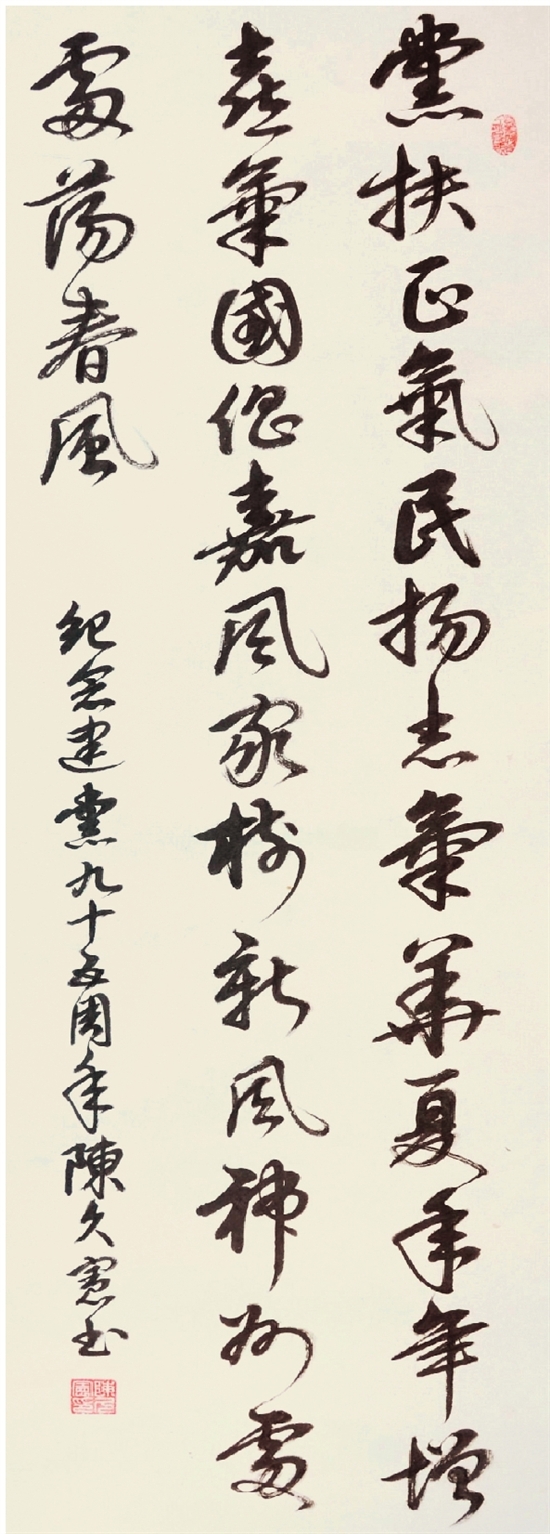 黨扶正氣民揚志氣華夏年年增
喜氣國倡嘉風家樹新風神州處
處蕩春風
紀念建黨九十五周年陳久憲书